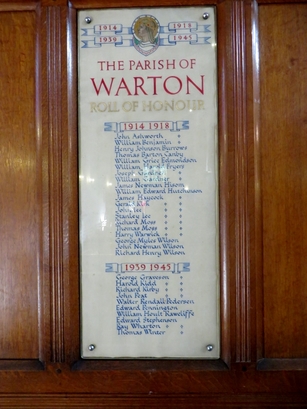 1914 1918
1939 1945
THE PARISH OF
WARTON
ROLL OF HONOUR
1914 1918
John Ashworth
William Benjamin
Henry Johnson Burrows
Thomas Barton Canby
William Grice Edmondson
William Fryers
Joseph
William Gardner
James Newman Hixon
William Edward Hutchinson
James Haycock
John Lee
Stanley Lee
Richard Moss
Thomas Moss
Harry Warwick
George Myles Wilson
John Newman Wilson
Richard Henry Wilson
1939 1945
George Graveson
Harold Kidd
Richard Kirby
John Prat
Walter Kendall Pedersen
Edward Pennington
William Hoult Rawcliffe
Edward Stephenson
Ray Wharton
Thomas Winter